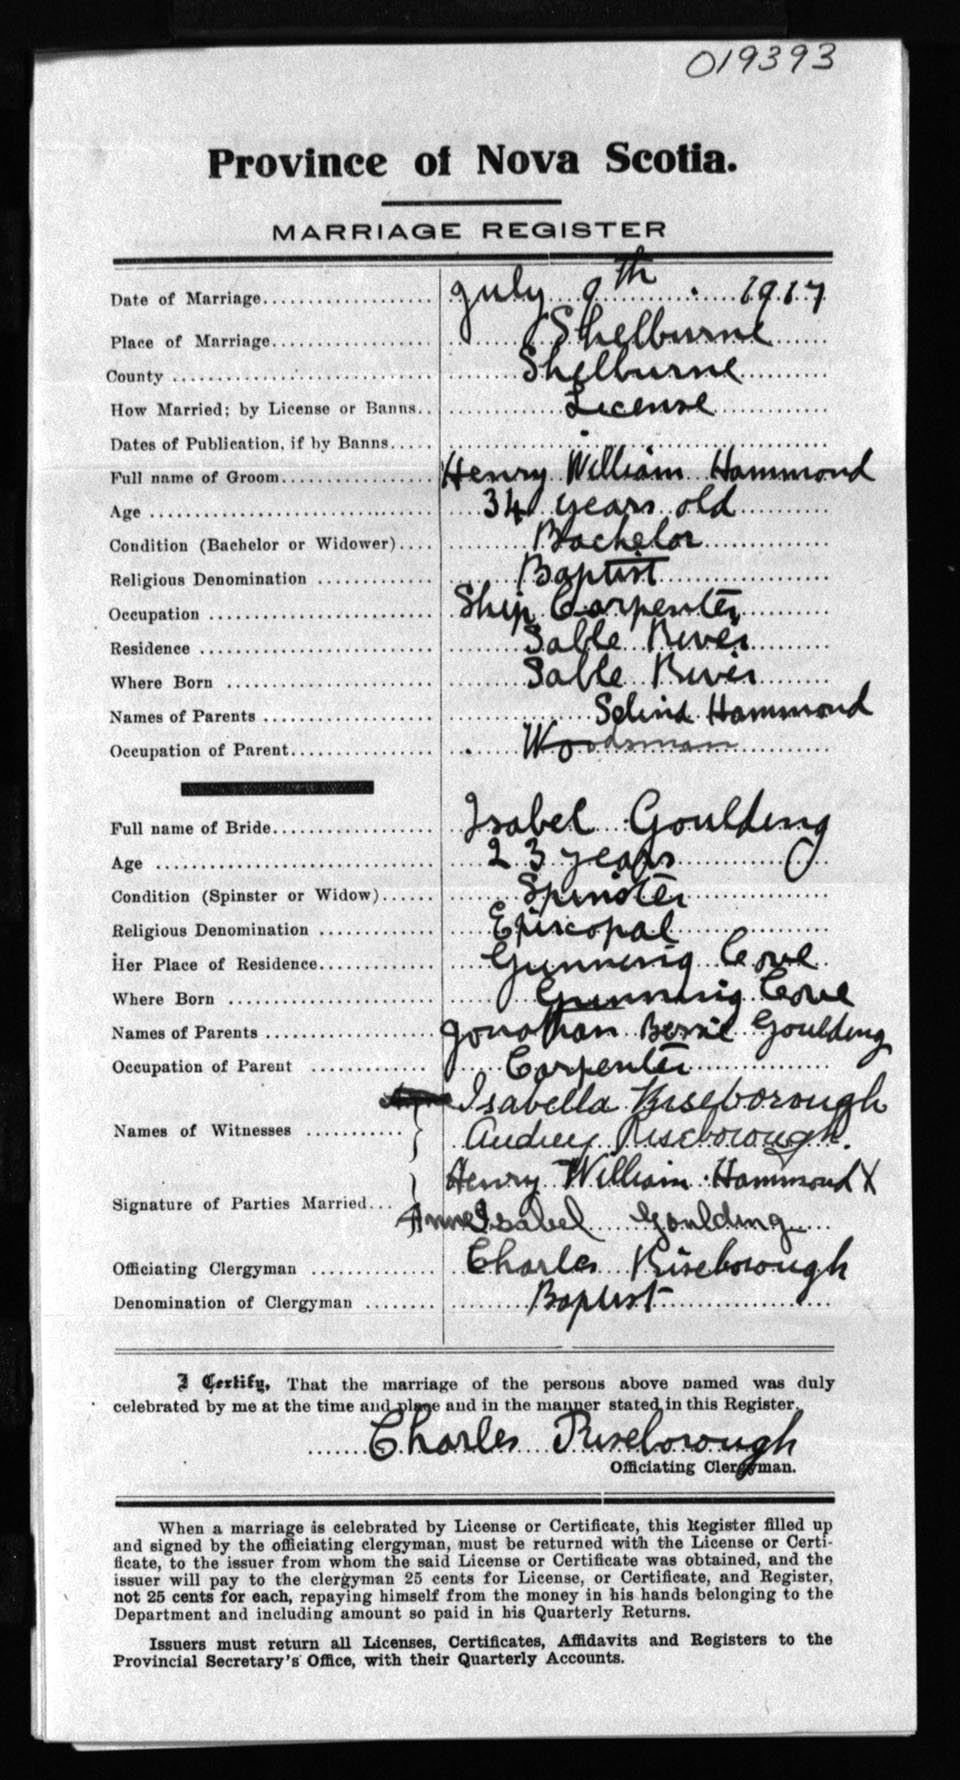 019393
Province of Nova Scotia.
MARRIAGE REGISTER
Date of Marriage.................... July 9th 1917
Place of Marriage................... Shelburne
County .............................. Shelburne
How Married; by License or Banns.. License
Dates of Publication, if by Banns.....
Full name of Groom.................. Henry William Hammond
Age ................................ 34 years old
Condition (Bachelor or Widower).... Bachelor
Religious Denomination .............. Baptist
Occupation .......................... Ship Carpenter
Residence ........................... Sable River
Where Born ......................... Sable River
Names of Parents .................... Selina Hammond
Occupation of Parent................. Woodsman
Full name of Bride................... Isabel Goulding
Age ................................ 23 years
Condition (Spinster or Widow)...... Spinster
Religious Denomination .............. Episcopal
Her Place of Residence.............. Gunning Cove
Where Born ......................... Gunning Cove
Names of Parents .................... Jonathan Bessie Goulding
Occupation of Parent ............... Carpenter
Isabella Riseborough
Names of Witnesses ........... Audrey Riseborough.
Henry William Hammond X
Signature of Parties Married...
Anne Isabel Goulding
Officiating Clergyman ............... Charles Riseborough
Denomination of Clergyman ......... Baptist
I Certify, That the marriage of the persons above named was duly
celebrated by me at the time and place and in the manner stated in this Register.
Charles Riseborough
Officiating Clergyman.
When a marriage is celebrated by License or Certificate, this Register filled up
and signed by the officiating clergyman, must be returned with the License or Certi-
ficate, to the issuer from whom the said License or Certificate was obtained, and the
issuer will pay to the clergyman 25 cents for License, or Certificate, and Register,
not 25 cents for each, repaying himself from the money in his hands belonging to the
Department and including amount so paid in his Quarterly Returns.
Issuers must return all Licenses, Certificates, Affidavits and Registers to the
Provincial Secretary's Office, with their Quarterly Accounts.